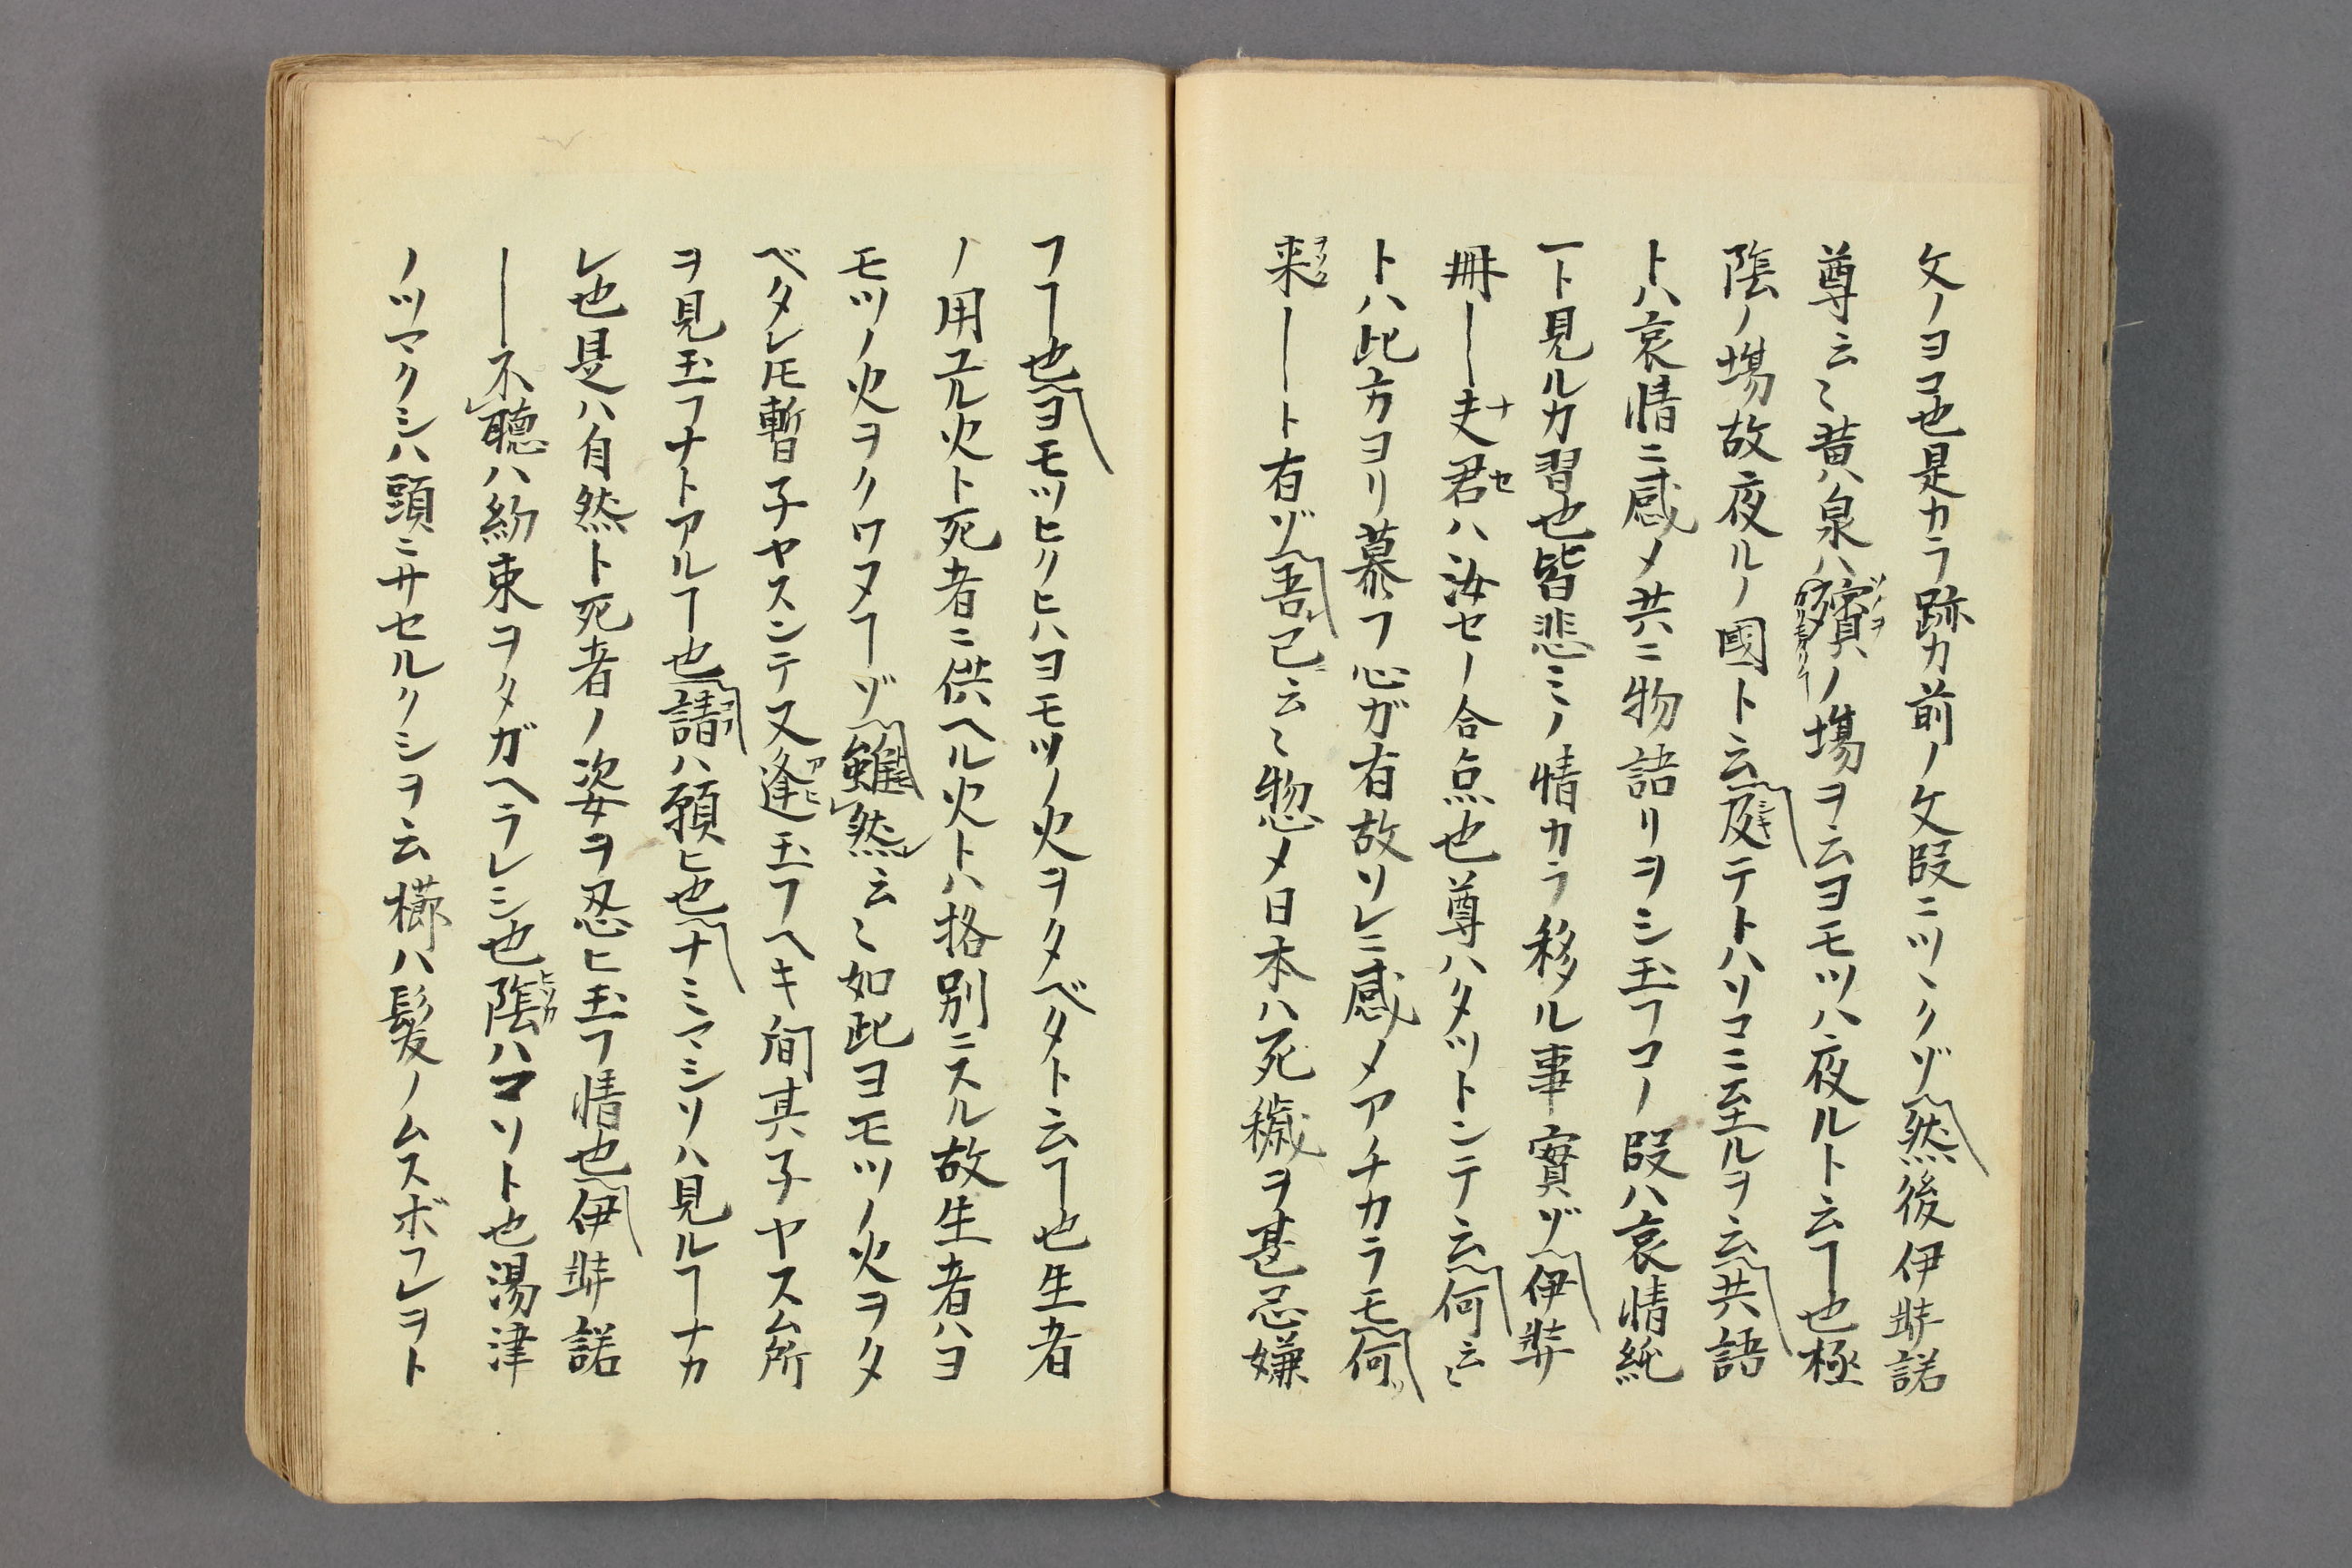 文ノヨコ也是カラ跡カ前ノ文段ニツヽクゾ然後伊弉諾
尊云〻黄泉ハ殯ノ場ヲ云ヨモツハ夜ルト云ヿ也極
陰ノ場故夜ルノ國ト云及テトハソコニ至ルヲ云共語
トハ哀情ニ感メ共ニ物語リヲシ玉フコノ段ハ哀情純
一ト見ルカ習也皆悲ミノ情カラ移ル事実ゾ伊弉
冊―夫君ハ汝セノ合点也尊ハタツトンテ云何云〻
トハ此方ヨリ慕フ心ガ有故ソレニ感メアチカラモ何
来――ト有ゾ吾已云〻惣メ日本ハ死穢ヲ甚忌嫌
フヿ也ヨモツヒクヒハヨモツノ火ヲクタベタト云ヿ也生者
ノ用ユル火ト死者ニ供ヘル火トハ格別ニスル故生者ハヨ
モツノ火ヲクワヌヿゾ雖然云〻如此ヨモツノ火ヲタ
ベタレ𪜈暫子ヤスンテ又逢玉フヘキ間其子ヤスム所
ヲ見玉フナトアルヿ也請ハ願ヒ也ナミマシソハ見ルヿナカ
レ也是ハ自然ト死者ノ姿ヲ忍ヒ玉フ情也伊弉諾
――不聴ハ約束ヲタガヘラレシ也陰ハコソト也湯津
ノツマクシハ頭ニサセルクシヲ云櫛ハ髪ノムスボフレヲト